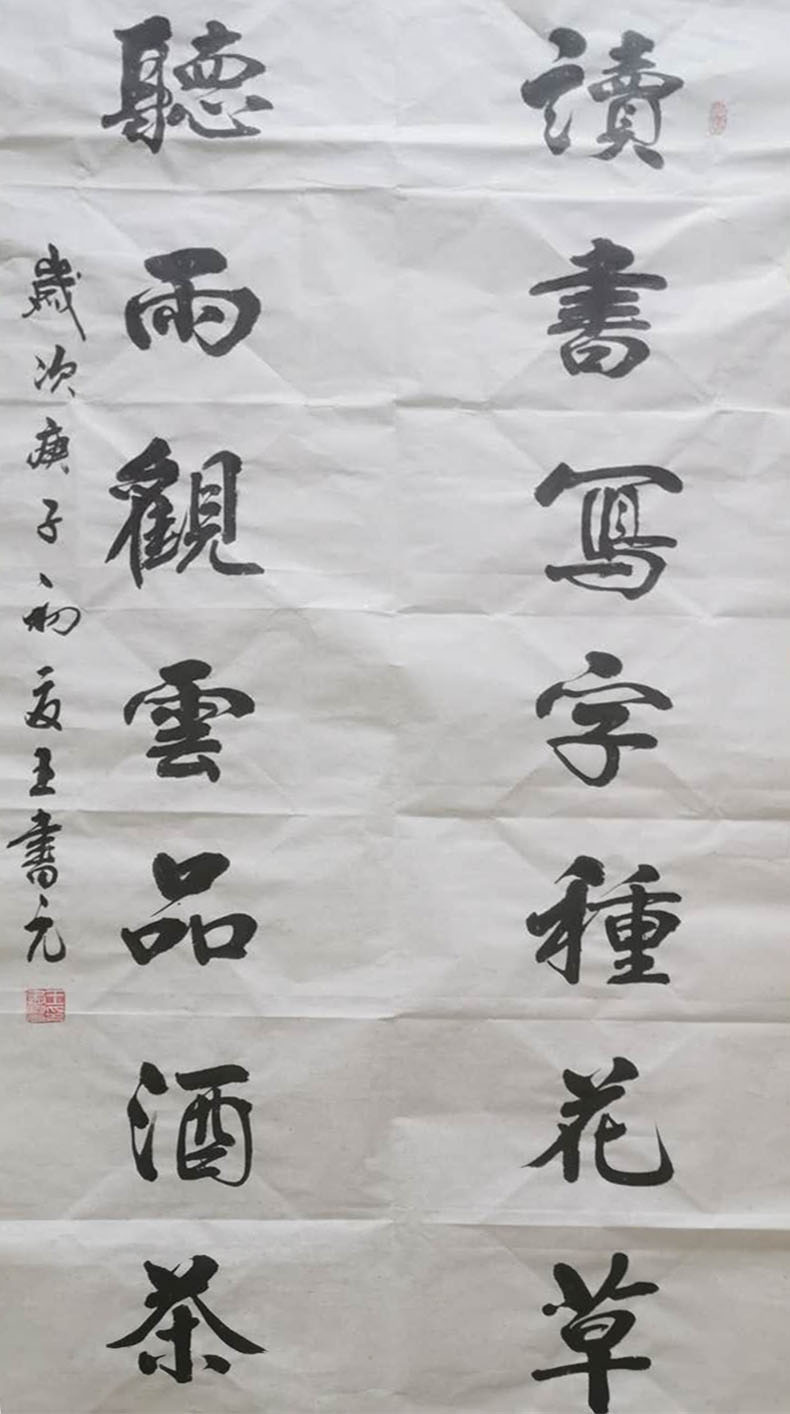 讀書寫字種花草
聽雨觀雲品酒茶
歲次庚子初夏王書元